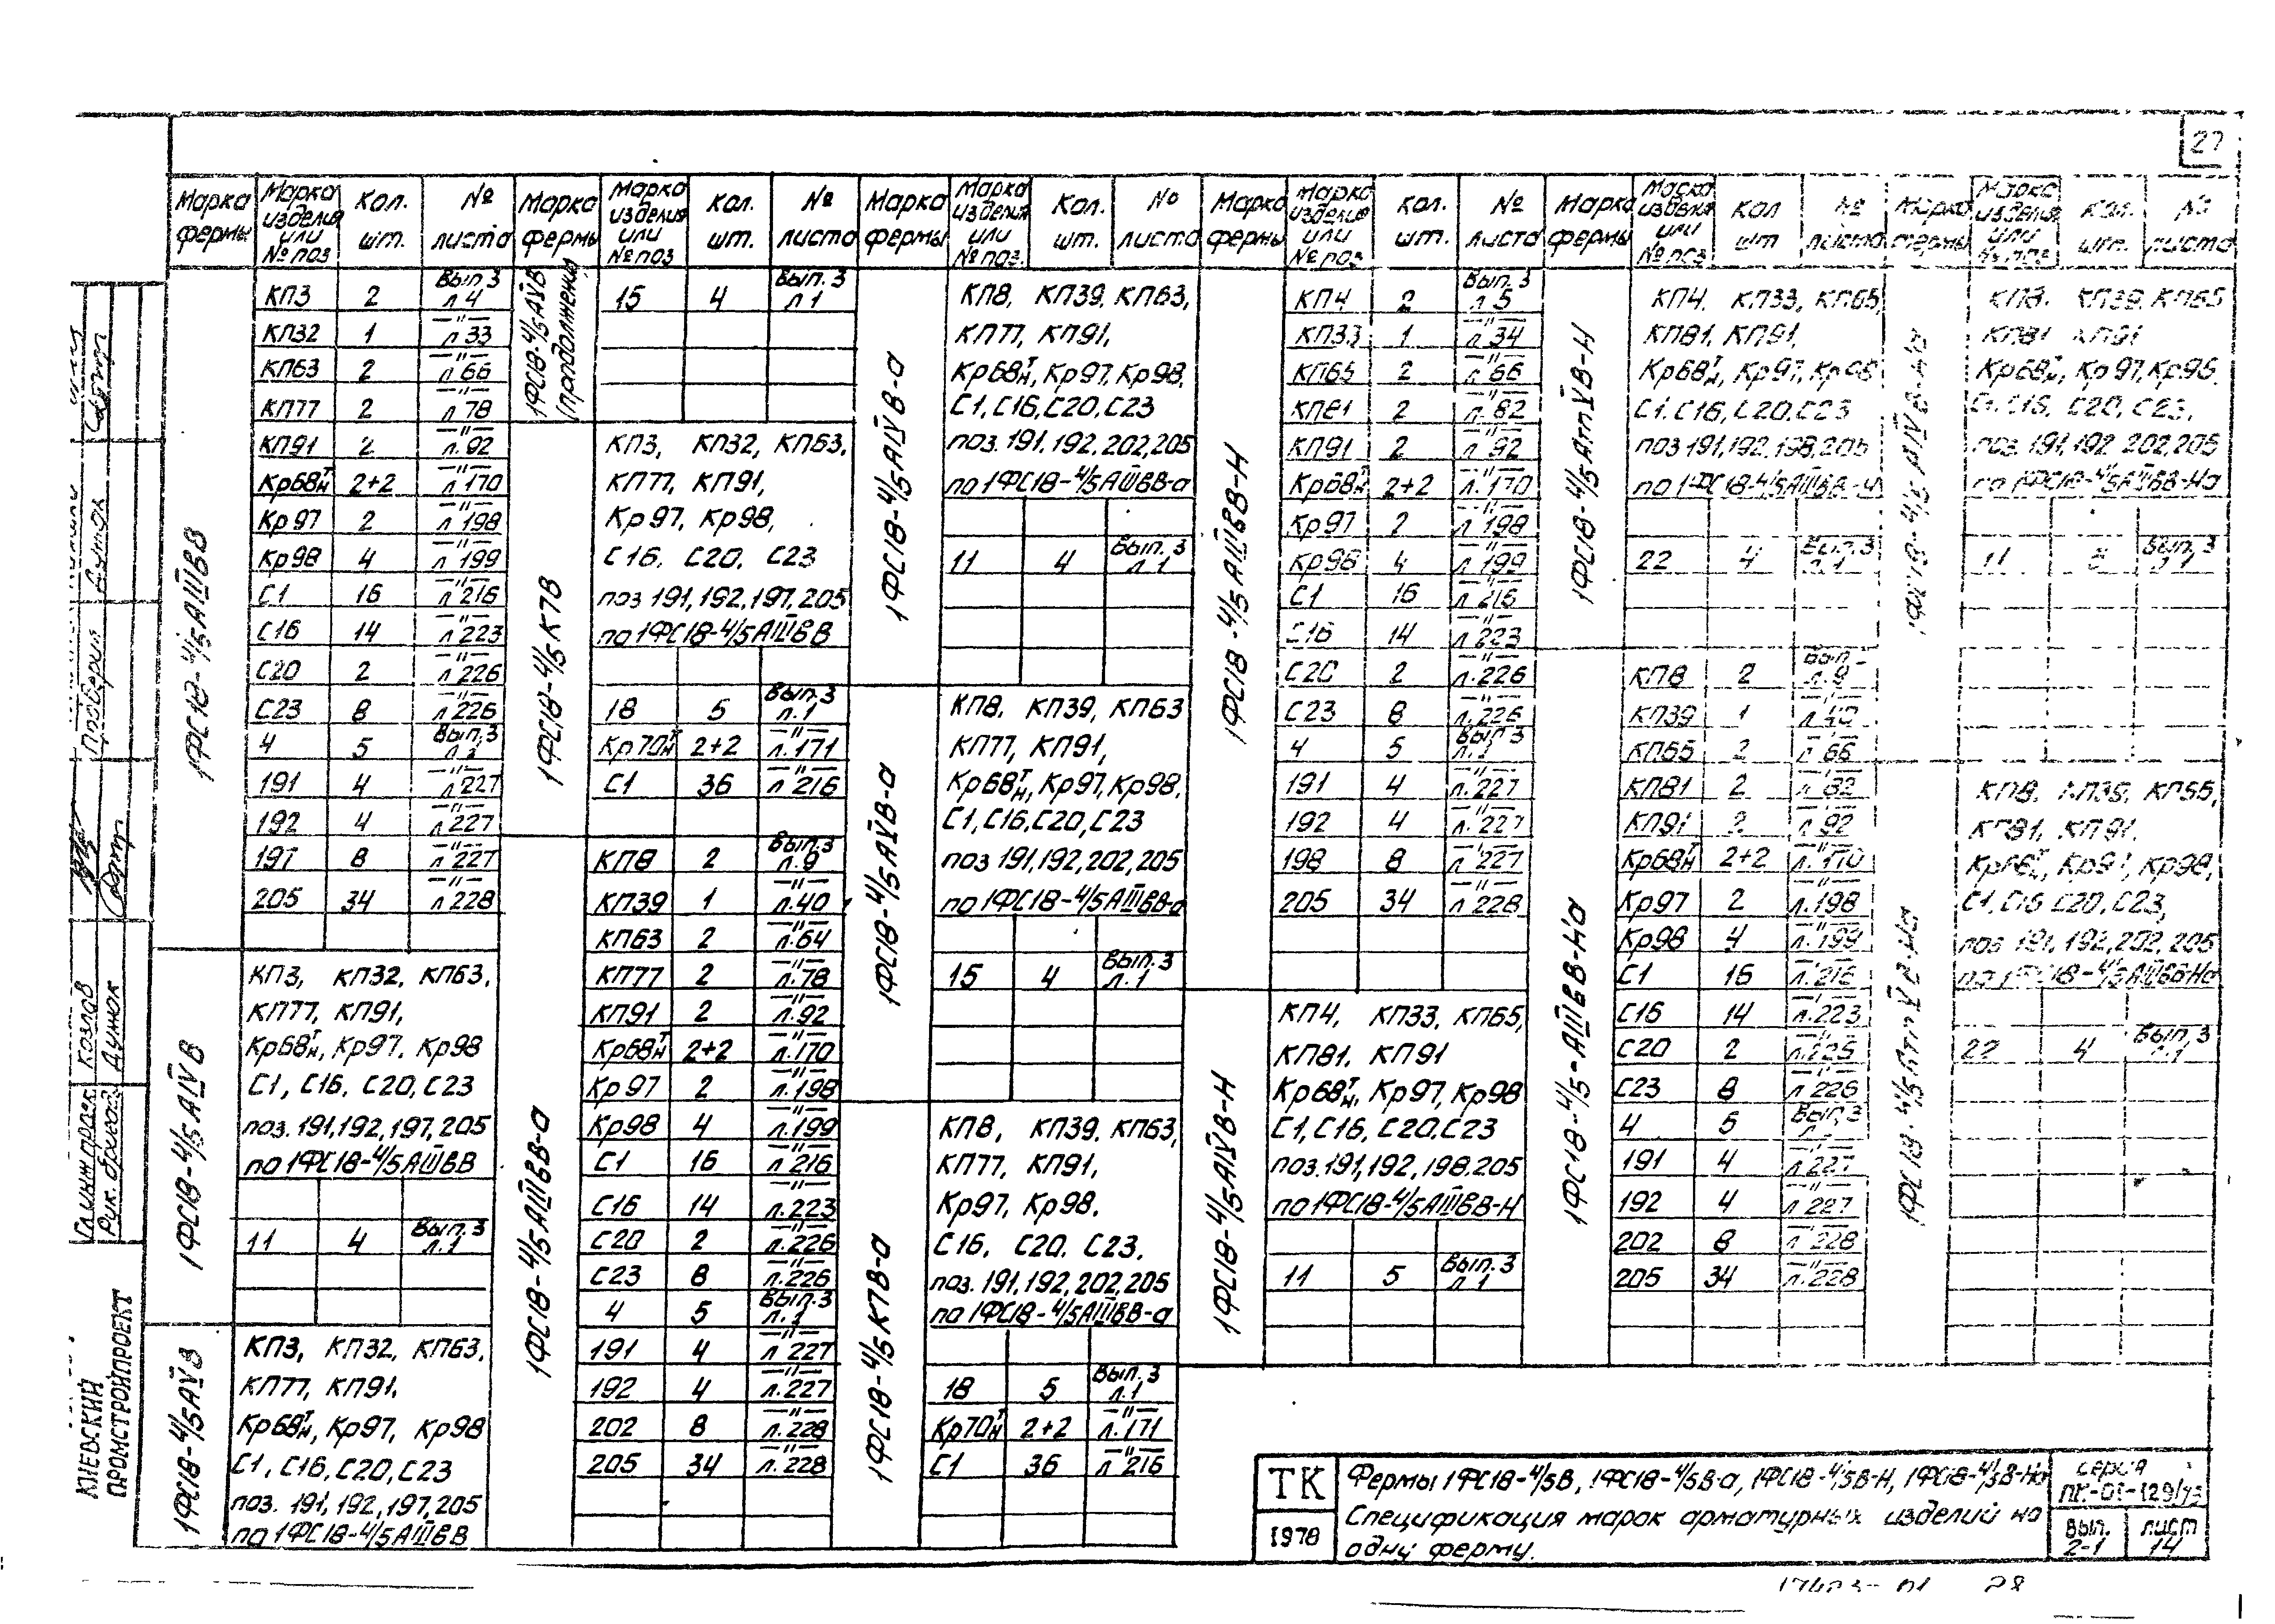 27
Марка фермы | Марка изделия или № поз | Кол. шт. | № листа
1ФС18-4/5АШвВ
КП3 2 Вып.3 л 4
КП32 1 —"— л 33
КП63 2 —"— л 66
КП77 2 —"— л 78
КП91 2 —"— л.92
Кр68тн 2+2 —"— л 170
Кр97 2 —"— л 198
Кр98 4 —"— л 199
С1 16 —"— л 216
С16 14 —"— л 223
С20 2 —"— л 226
С23 8 —"— л 226
4 5 Вып.3 л.1
191 4 —"— л 227
192 4 —"— л 227
197 8 —"— л 227
205 34 —"— л 228
1ФС18-4/5АIVВ
КП3, КП32, КП63,
КП77, КП91,
Кр68тн, Кр97, Кр98
С1, С16, С20, С23
поз. 191,192,197,205
по 1ФС18-4/5АШвВ
11 4 Вып.3 л.1
1ФС18-4/5АVВ
КП3, КП32, КП63,
КП77, КП91,
Кр68тн, Кр97, Кр98
С1, С16, С20, С23
поз. 191,192,197,205
по 1ФС18-4/5АШвВ
Марка фермы | Марка изделия или № поз | Кол. шт. | № листа
1ФС18-4/5АVВ (продолжение)
15 4 Вып.3 л 1
1ФС18-4/5К7В
КП3, КП32, КП63,
КП77, КП91,
Кр97, Кр98,
С16, С20, С23
поз 191,192,197,205
по 1ФС18-4/5АШвВ
18 5 Вып.3 л.1
Кр70тн 2+2 —"— л.171
С1 36 —"— л 216
1ФС18-4/5АШвВ-а
КП8 2 Вып.3 л.9
КП39 1 —"— л.40
КП63 2 —"— л.64
КП77 2 —"— л.78
КП91 2 —"— л.92
Кр68тн 2+2 —"— л.170
Кр97 2 —"— л.198
Кр98 4 —"— л.199
С1 16 —"— л 216
С16 14 —"— л.223
С20 2 —"— л.226
С23 8 —"— л.226
4 5 Вып.3 л.1
191 4 —"— л 227
192 4 —"— л.227
202 8 —"— л.228
205 34 —"— л.228
Марка фермы | Марка изделия или № поз. | Кол. шт. | № листа
1ФС18-4/5АIVВ-а
КП8, КП39, КП63,
КП77, КП91,
Кр68тн, Кр97, Кр98,
С1, С16, С20, С23
поз. 191,192,202,205
по 1ФС18-4/5АШвВ-а
11 4 Вып.3 л.1
1ФС18-4/5АVВ-а
КП8, КП39, КП63
КП77, КП91,
Кр68тн, Кр97, Кр98,
С1, С16, С20, С23
поз 191,192,202,205
по 1ФС18-4/5АШвВ-а
15 4 Вып.3 л.1
1ФС18-4/5К7В-а
КП8, КП39, КП63,
КП77, КП91,
Кр97, Кр98,
С16, С20, С23,
поз. 191,192,202,205
по 1ФС18-4/5АШвВ-а
18 5 Вып.3 л.1
Кр70тн 2+2 —"— л.171
С1 36 —"— л 216
Марка фермы | Марка изделия или № поз | Кол. шт. | № листа
1ФС18-4/5АШвВ-Н
КП4 2 Вып.3 л 5
КП33 1 —"— л 34
КП65 2 —"— л 66
КП81 2 —"— л.82
КП91 2 —"— л 92
Кр68тн 2+2 —"— л.170
Кр97 2 —"— л 198
Кр98 4 —"— л 199
С1 16 —"— л 216
С16 14 —"— л.223
С20 2 —"— л.226
С23 8 —"— л.226
4 5 Вып.3 л.1
191 4 —"— л.227
192 4 —"— л.227
198 8 —"— л 227
205 34 —"— л 228
1ФС18-4/5АIVВ-Н
КП4, КП33, КП65,
КП81, КП91
Кр68тн, Кр97, Кр98
С1, С16, С20, С23
поз. 191,192,198,205
по 1ФС18-4/5АШвВ-Н
11 5 Вып.3 л 1
Марка фермы | Марка изделия или № поз | Кол шт | № листа
1ФС18-4/5АтVВ-Н
КП4, КП33, КП65,
КП81, КП91,
Кр68тн, Кр97, Кр98
С1, С16, С20, С23
поз 191,192,198,205
по 1ФС18-4/5АШвВ-Н
22 4 Вып.3 л.1
1ФС18-4/5-АШвВ-На
КП8 2 Вып. л.9
КП39 1 —"— л 40
КП65 2 —"— л 66
КП81 2 —"— л 82
КП91 2 —"— л 92
Кр68тн 2+2 —"— л.170
Кр97 2 —"— л.198
Кр98 4 —"— л.199
С1 16 —"— л.216
С16 14 —"— л.223
С20 2 —"— л.226
С23 8 —"— л 226
4 5 Вып.3
191 4 —"— л 227
192 4 —"— л 227
202 8 —"— л 228
205 34 —"— л.228
Марка фермы | Марка изделия или № поз | Кол. шт. | № листа
1ФС18-4/5АIVВ-На
КП8, КП39, КП65
КП81 КП91
Кр68тн, Кр97, Кр98
С1, С16, С20, С23,
поз. 191,192 202,205
по 1ФС18-4/5АШвВ-На
11 Вып.3 л.1
1ФС18-4/5АтVВ-На
КП8, КП39, КП65,
КП81, КП91,
Кр68тн, Кр97, Кр98,
С1, С16 С20, С23,
поз 191,192,202,205
по 1ФС18-4/5АШвВ-На
22 4 Вып.3 л.1
Проверил Дутах
Гл.инж.проек. Козлов
Рук. бригад. Дужак
КИЕВСКИЙ
ПРОМСТРОЙПРОЕКТ
ТК
1978
Фермы 1ФС18-4/5В, 1ФС18-4/5В-а, 1ФС18-4/5В-Н, 1ФС18-4/5В-На
Спецификация марок арматурных изделий на
одну ферму.
серия
ПК-01-129/73
вып. 2-1
лист 14
28